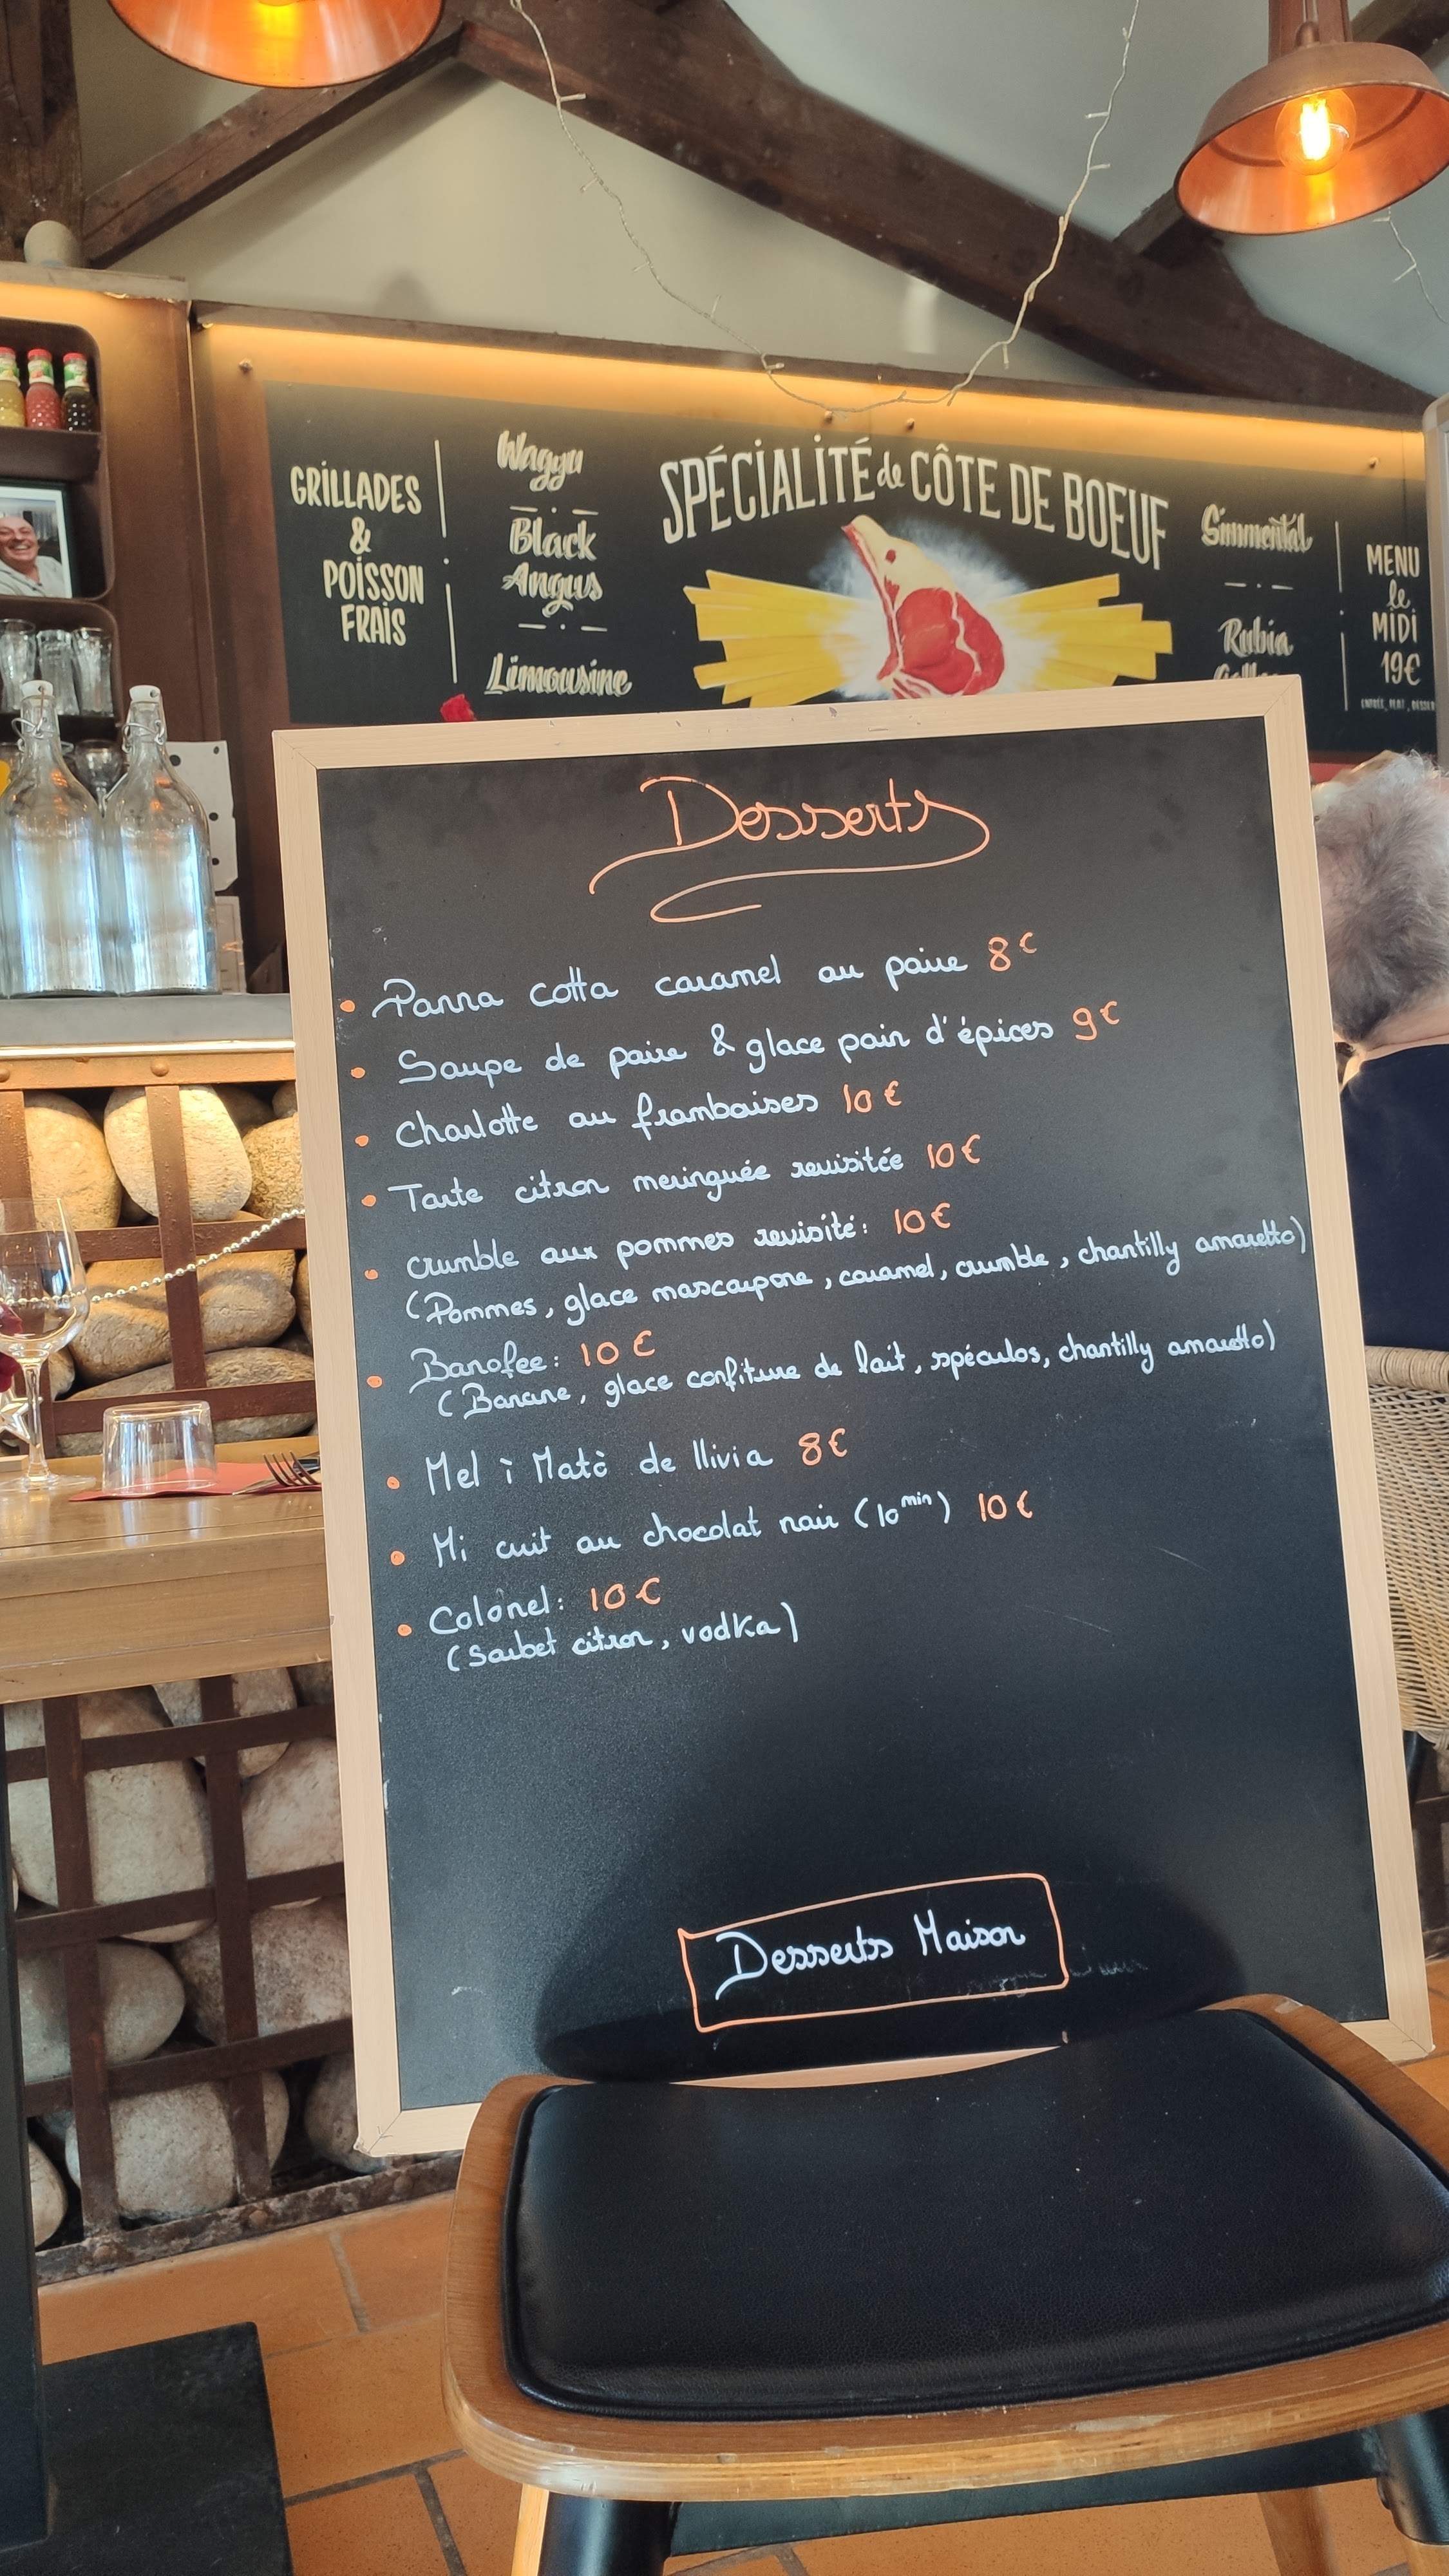 GRILLADES
&
POISSON
FRAIS
Wagyu
Black
Angus
Limousine
SPÉCIALITÉ de CÔTE DE BOEUF
Simmental
Rubia
MENU
le
MIDI
19€
Desserts
• Panna cotta caramel au poire 8€
• Soupe de poire & glace pain d'épices 9€
• Charlotte au framboises 10€
• Tarte citron meringuée revisitée 10€
• crumble aux pommes revisité: 10€
(Pommes, glace mascarpone, caramel, crumble, chantilly amaretto)
• Banofee: 10€
(Banane, glace confiture de lait, spéculos, chantilly amaretto)
• Mel i Matò de llivia 8€
• Mi cuit au chocolat noir (10min) 10€
• Colonel: 10€
(Sorbet citron, vodka)
Desserts Maison